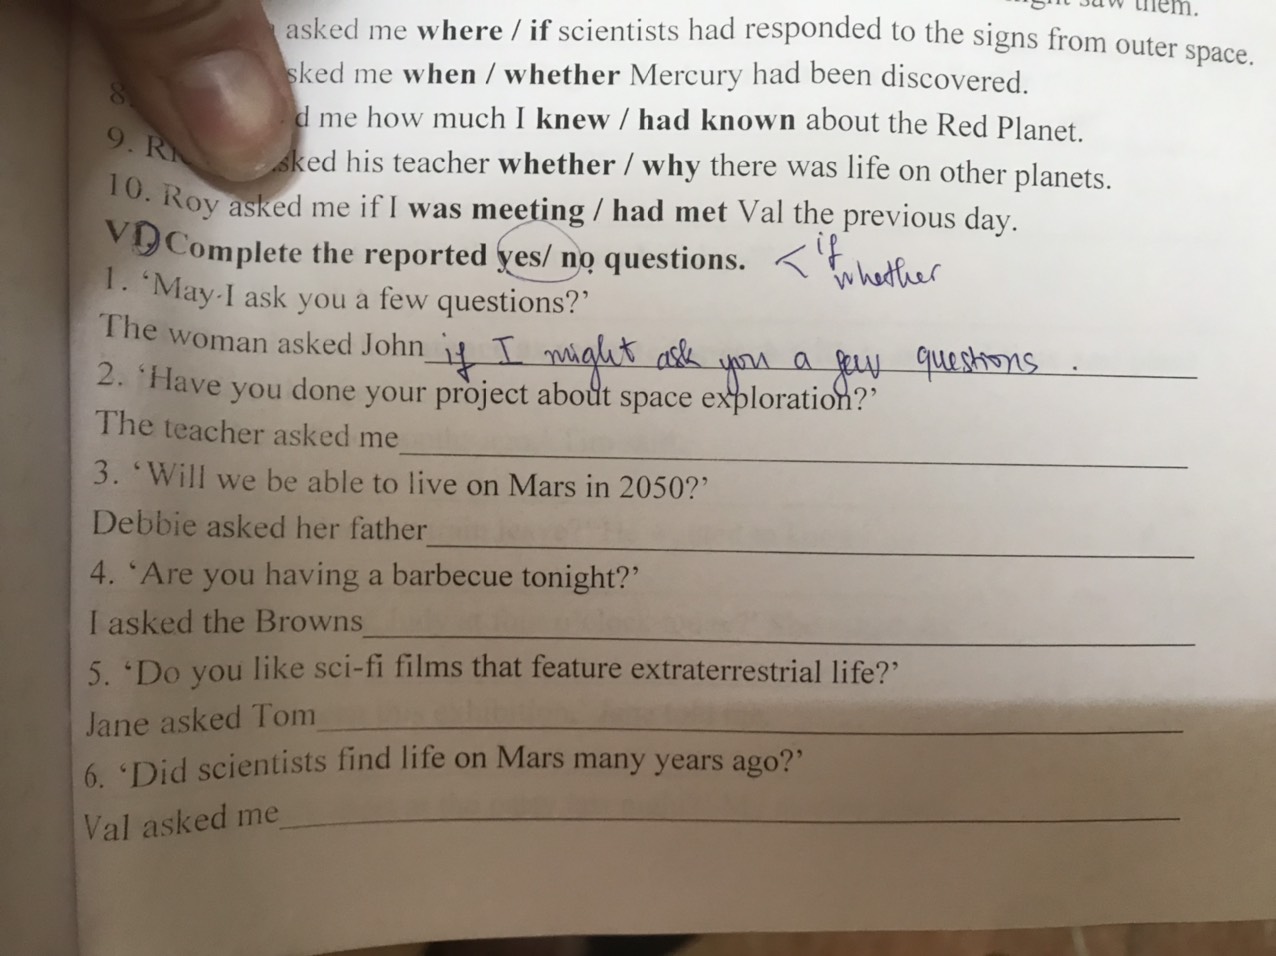 saw them.
asked me where / if scientists had responded to the signs from outer space.
8. sked me when / whether Mercury had been discovered.
d me how much I knew / had known about the Red Planet.
9. sked his teacher whether / why there was life on other planets.
10. Roy asked me if I was meeting / had met Val the previous day.
VI) Complete the reported yes/ no questions. < if
whether
1. ‘May I ask you a few questions?’
The woman asked John if I might ask you a few questions .
2. ‘Have you done your project about space exploration?’
The teacher asked me
3. ‘Will we be able to live on Mars in 2050?’
Debbie asked her father
4. ‘Are you having a barbecue tonight?’
I asked the Browns
5. ‘Do you like sci-fi films that feature extraterrestrial life?’
Jane asked Tom
6. ‘Did scientists find life on Mars many years ago?’
Val asked me